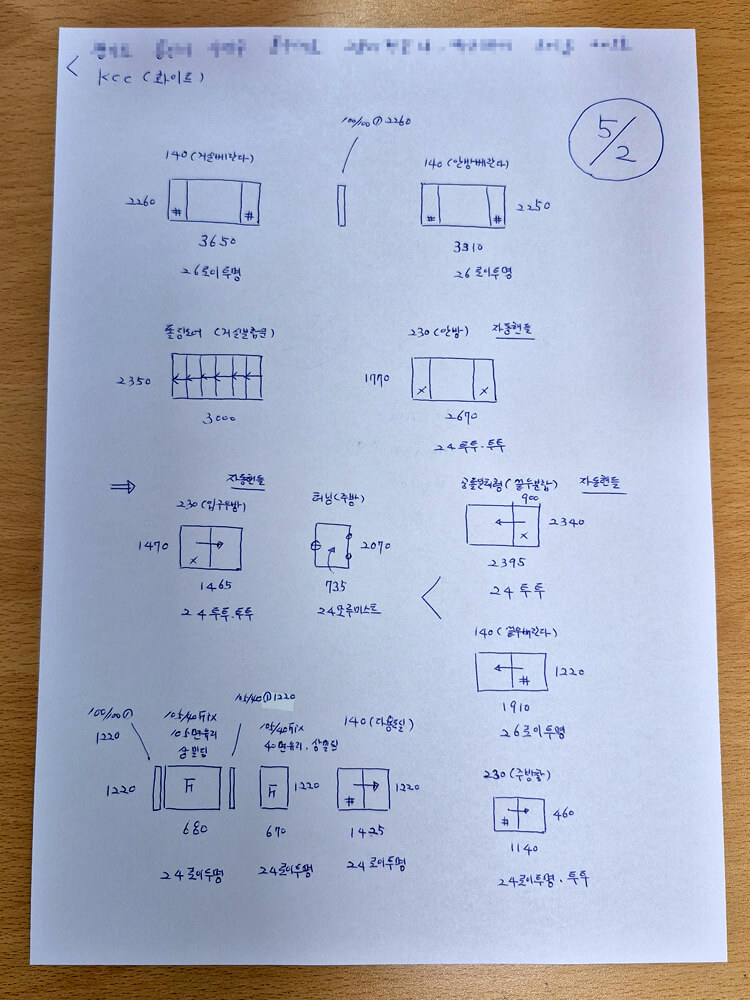 KCC (화이트)
5/2
100/100 ① 2260
140 (거실베란다)
2260
#
#
3650
26로이투명
140 (안방베란다)
2250
#
#
3310
26로이투명
폴딩도어 (거실분합문)
2350
3000
230 (안방) 자동핸들
1770
x
x
2670
24투투.투투
⇒
자동핸들
230 (입구우방)
1470
x
1465
24투투.투투
터닝(주방)
2070
735
24모루미스트
자동핸들
900
2340
x
2395
24투투
140 (끝우베란다)
1220
#
1910
26로이투명
100/100 ①
1220
105/40 FIX
105면유리
상몰딩
1220
F
680
24로이투명
105/40 ① 1220
105/40 FIX
40면유리.상몰딩
F
1220
670
24로이투명
140 (다용도실)
#
1220
1425
24로이투명
230 (주방창)
#
460
1140
24로이투명.투투